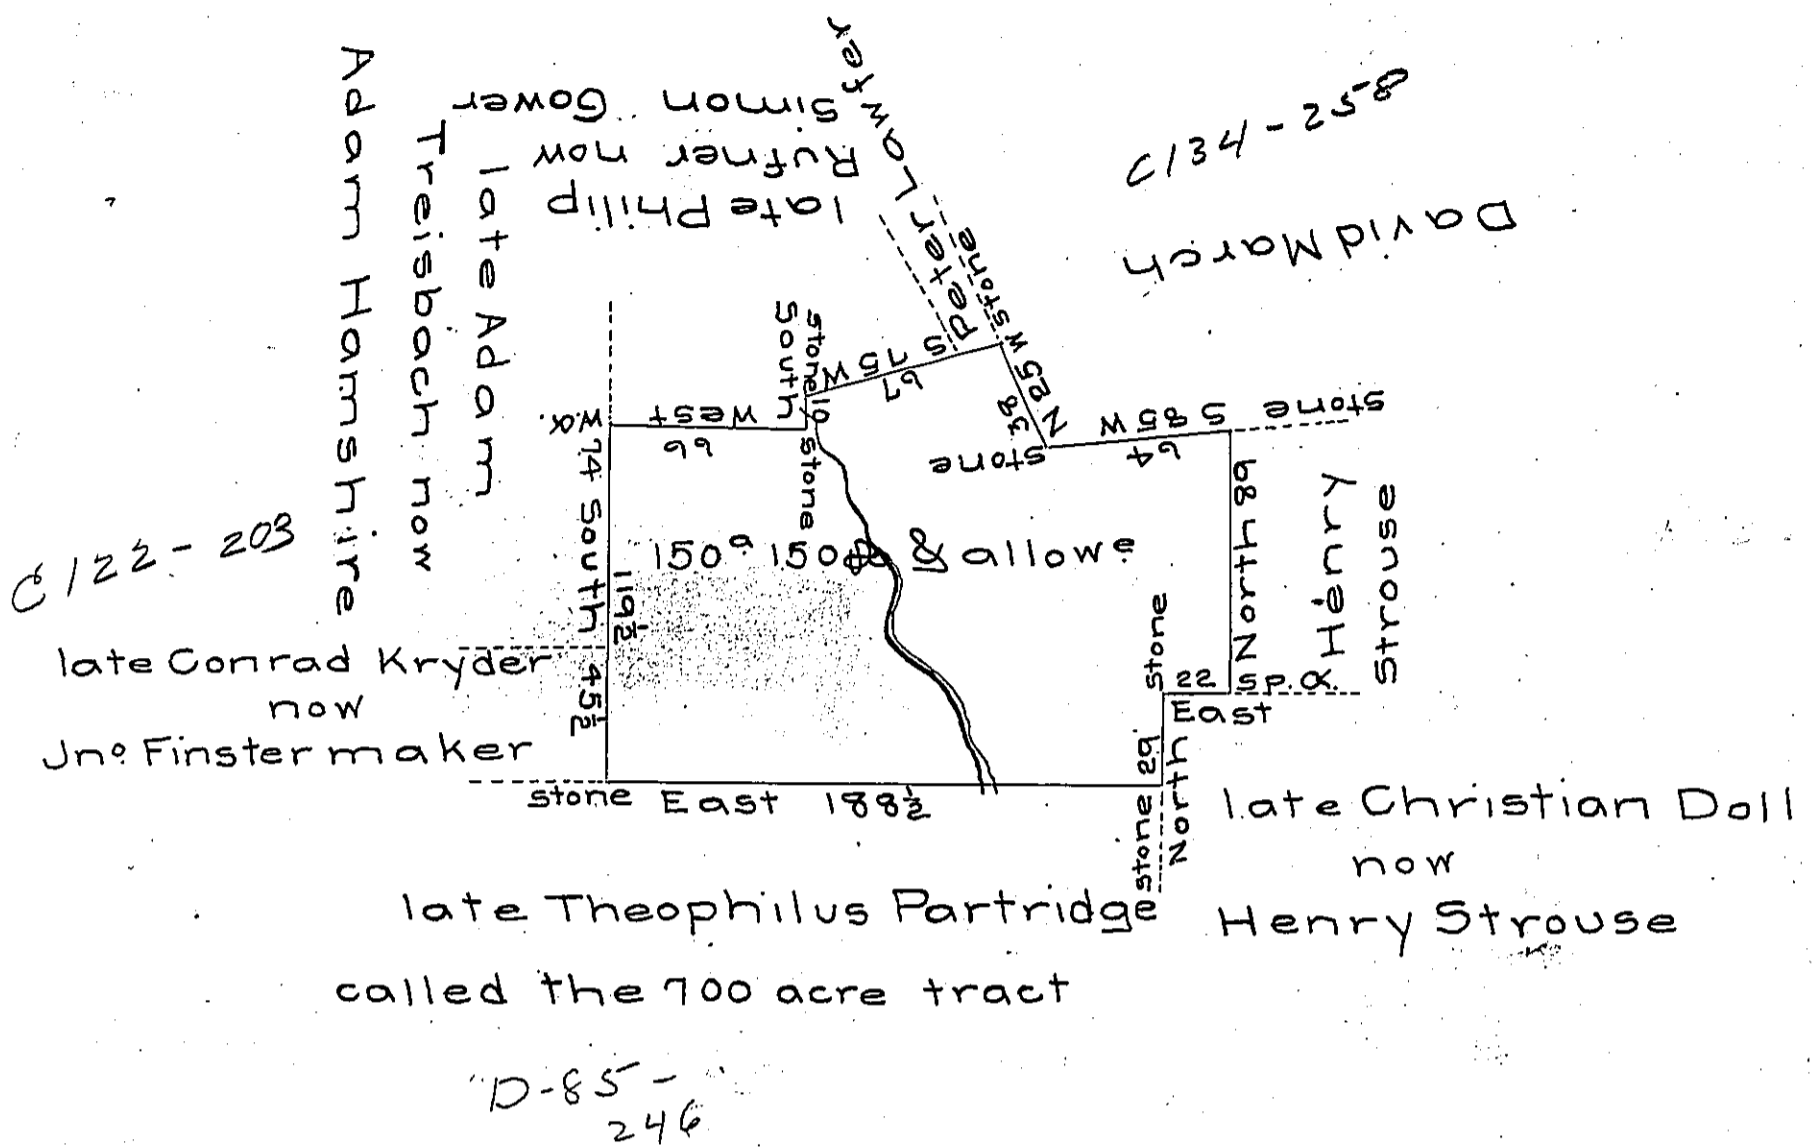 Adam Hamshire
late Adam
Treisbach now
late Philip
Rufner now
Simon Gower
Peter Lawfer
C134-258
David March
C122-203
late Conrad Kryder
now
Jnº Finstermaker
W.O.
74 South
119½
45½
West
66
South
stone
10
stone
S 75 W
67
stone
N 25 W
38
stone
S 85 W
64
stone
North 89
Henry
Strouse
150ª 150 & allowᵉ
stone
22
SP.O.
East
29
North
stone
stone East 188½
late Christian Doll
now
Henry Strouse
late Theophilus Partridge
called the 700 acre tract
D-85-
246